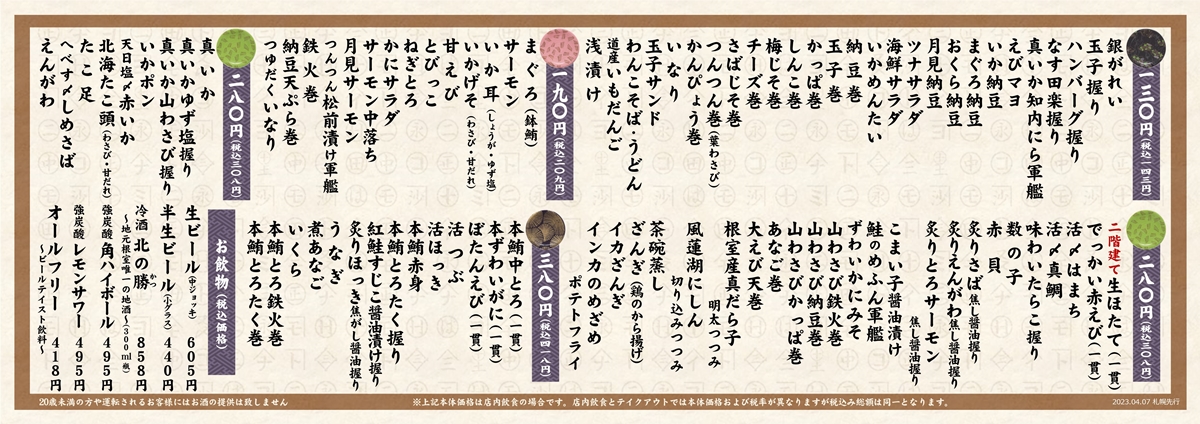 一三〇円(税込一四三円)
銀がれい
玉子握り
ハンバーグ握り
なす田楽握り
真いか知内にら軍艦
えびマヨ
いか納豆
まぐろ納豆
おくら納豆
月見納豆
ツナサラダ
海鮮サラダ
いかめんたい
納豆巻
玉子巻
かっぱ巻
しんこ巻
梅じそ巻
チーズ巻
さばじそ巻
つんつん巻(葉わさび)
かんぴょう巻
いなり
玉子サンド
わんこそば・うどん
道産いもだんご
浅漬け
一九〇円(税込二〇九円)
まぐろ(鉢鮪)
サーモン
いか耳(しょうが・ゆず塩)
いかげそ(わさび・甘だれ)
甘えび
とびっこ
ねぎとろ
かにサラダ
サーモン中落ち
月見サーモン
つんつん松前漬け軍艦
鉄火巻
納豆天ぷら巻
つゆだくいなり
二八〇円(税込三〇八円)
真いか
真いかゆず塩握り
真いか山わさび握り
いかポン
天日塩〆赤いか
北海たこ頭(わさび・甘だれ)
たこ足
へべす〆しめさば
えんがわ
二八〇円(税込三〇八円)
二階建て生ほたて(一貫)
でっかい赤えび(一貫)
活〆はまち
活〆真鯛
味わいたらこ握り
数の子
赤貝
炙りさば焦し醤油握り
炙りえんがわ焦し醤油握り
炙りとろサーモン
焦し醤油握り
こまい子醤油漬け
鮭のめふん軍艦
ずわいかにみそ
山わさび鉄火巻
山わさび納豆巻
山わさびかっぱ巻
あなご巻
大えび天巻
根室産真だら子
明太つつみ
風蓮湖にしん
切り込みつつみ
茶碗蒸し
ざんぎ(鶏のから揚げ)
イカざんぎ
インカのめざめ
ポテトフライ
三八〇円(税込四一八円)
本鮪中とろ(一貫)
本ずわいがに(一貫)
ぼたんえび(一貫)
活つぶ
活ほっき
本鮪赤身
本鮪とろたく握り
紅鮭すじこ醤油漬け握り
炙りほっき焦がし醤油握り
うなぎ
煮あなご
いくら
本鮪とろ鉄火巻
本鮪とろたく巻
お飲物(税込価格)
生ビール(中ジョッキ) 605円
半生ビール(小グラス) 440円
冷酒 北の勝 858円
かつ
～地元根室唯一の地酒(300ml瓶)
強炭酸 角ハイボール 495円
強炭酸 レモンサワー 495円
オールフリー 418円
～ビールテイスト飲料～
20歳未満の方や運転されるお客様にはお酒の提供は致しません
※上記本体価格は店内飲食の場合です。店内飲食とテイクアウトでは本体価格および税率が異なりますが税込み総額は同一となります。
2023.04.07 札幌先行